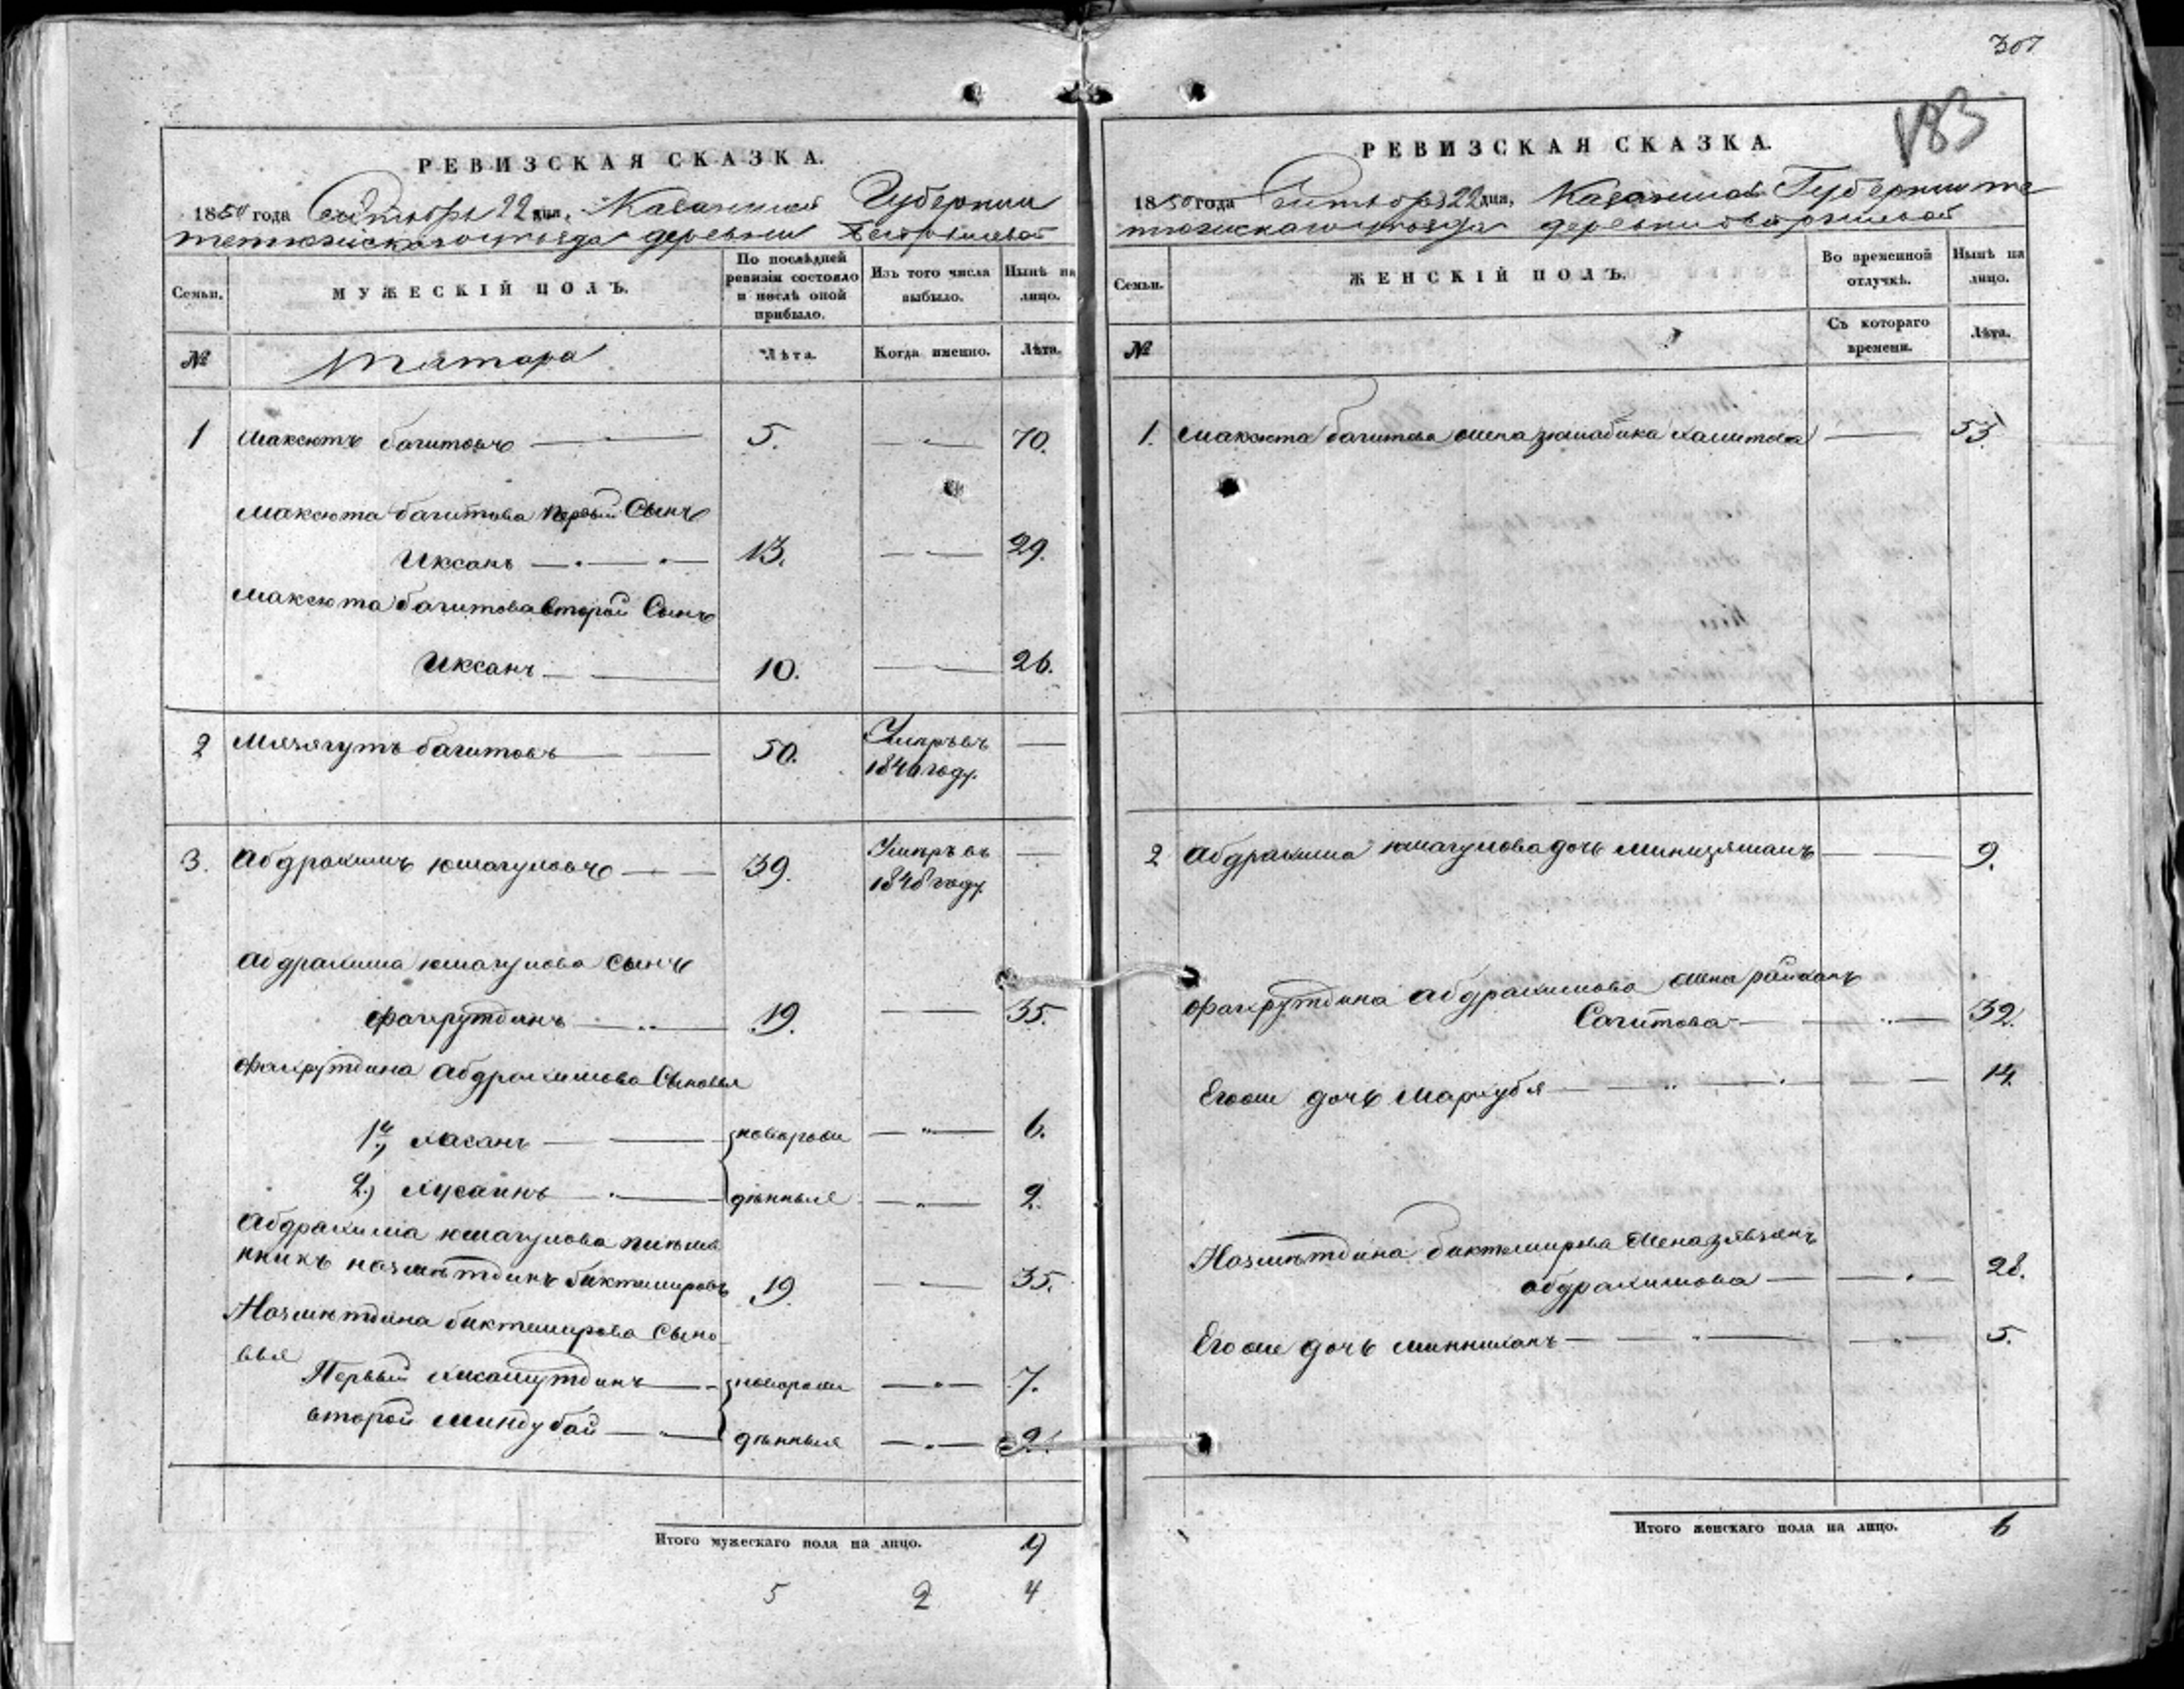 307
183
РЕВИЗСКАЯ СКАЗКА.
1850 года Октября 22 дня, Казанской Губернии
тетюшскаго уезда деревни
Семьи.
МУЖЕСКІЙ ПОЛЪ.
По послѣдней ревизіи состояло и послѣ оной прибыло.
Изъ того числа выбыло.
Нынѣ на лицо.
№
Татара
Лѣта.
Когда именно.
Лѣта.
1 Максютъ багитовъ 5. 70.
Максюта багитова первый Сынъ
Иксанъ 13. 29.
Максюта багитова второй Сынъ
Иксанъ 10. 26.
2 Мизягутъ багитовъ 50. Умръ въ
1840 году.
3. Абдрахимъ юмагуловъ 39. Умеръ въ
1848 году.
Абдрахима юмагулова сынъ
Фахрутдинъ 19. 35.
Фахрутдина Абдрахимова Сыновья
1й, хасанъ новорож 6.
2) хусаинъ дѣнныя 2.
Абдрахима юмагулова племя
нникъ назмѣтдинъ биктемировъ 19. 35.
Назмѣтдина биктемирова сыно
вья
Первый хисамутдинъ новорож 7.
второй миндубай дѣнныя 2.
Итого мужескаго пола на лицо. 9
5 2 4
РЕВИЗСКАЯ СКАЗКА.
1850 года Октября 22 дня, Казанской Губернии те
тюшскаго уезда деревни
Семьи.
ЖЕНСКІЙ ПОЛЪ.
Во временной отлучкѣ.
Нынѣ на лицо.
№
Съ котораго времени.
Лѣта.
1. Максюта багитова жена зюмабика хамитова 53
2 Абдрахима юмагулова дочь минизямалъ 9.
Фахрутдина абдрахимова жена райханъ
Сагитова 32.
Егоже дочь Мархубя 14.
Назмѣтдина биктемирова жена
абдрахимова 28.
Егоже дочь минниханъ 5.
Итого женскаго пола на лицо. 6